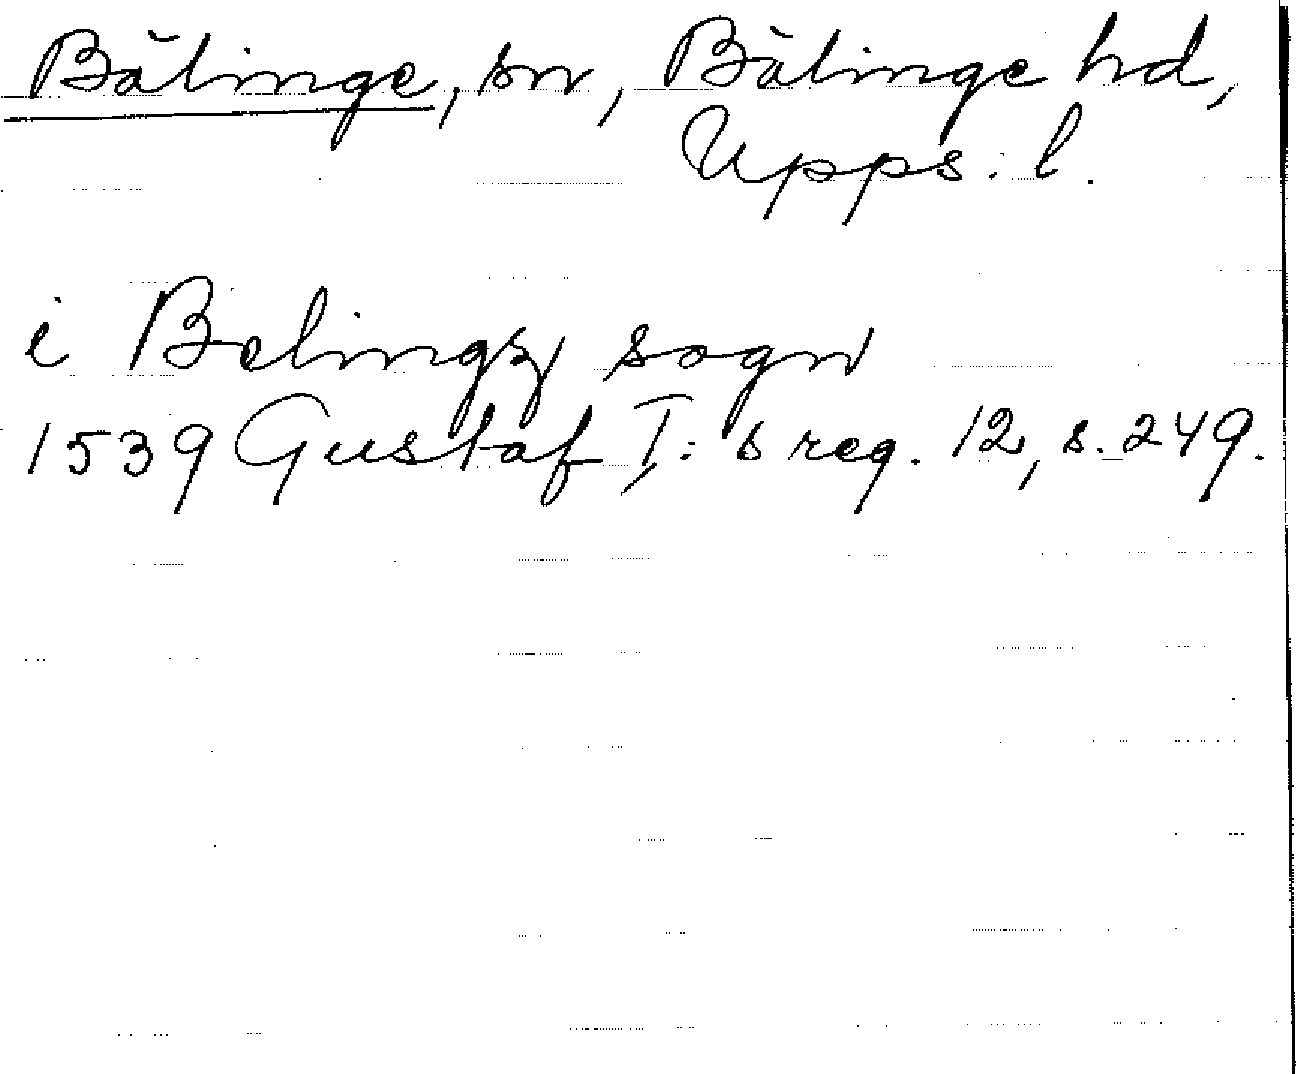 Bälinge, sn, Bälinge hd,
Upps. l.
i Belingzy sogn
1539 Gustaf I:s reg. 12, s. 249.